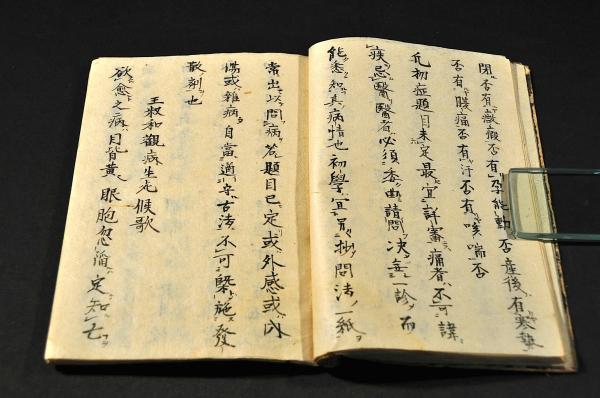 閉否有癥瘕否有孕能動否産後有寒熱
否有腹痛否有汗否有咳喘否
凡初症題目未定最宜詳審痛者不可諱
疾忌醫醫者必須委曲請問决無一診而
能悉知其病情也初學宜另抄問法一紙
常出以問病若題目已定或外感或内
傷或雜病自當遵守古法不可槩施發
散剤也
王叔和觀病生死候歌
欲愈之病目眥黄眼胞忽陥定知亡